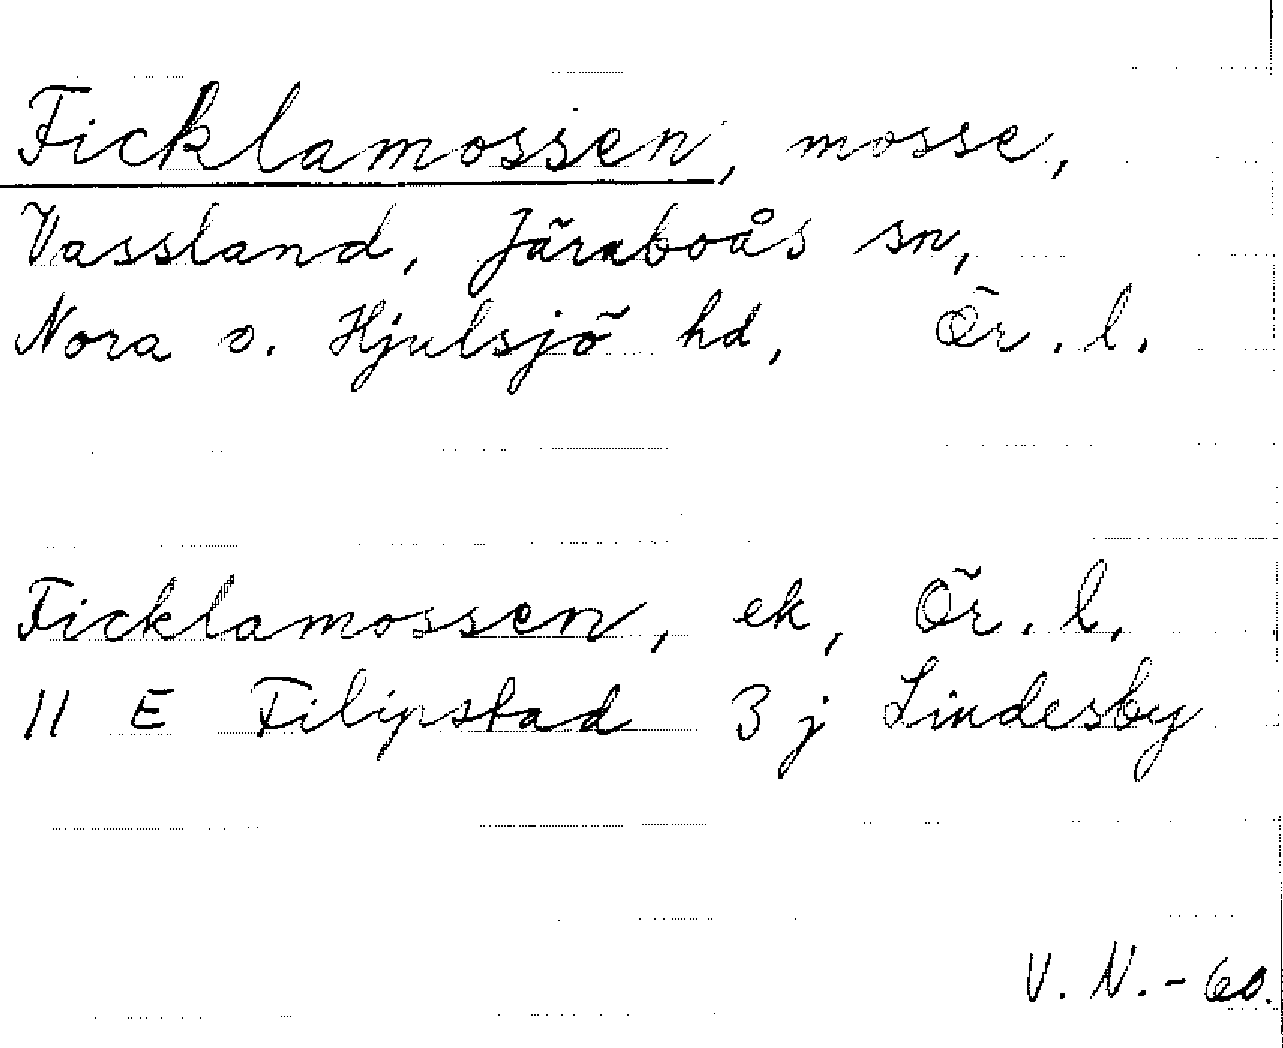 Ficklamossen, mosse,
Vassland, Järnboås sn,
Nora o. Hjulsjö hd, Ör. l.
Ficklamossen, ek, Ör. l.
11 E Filipstad 3 j Lindesby
V. N. - 60.